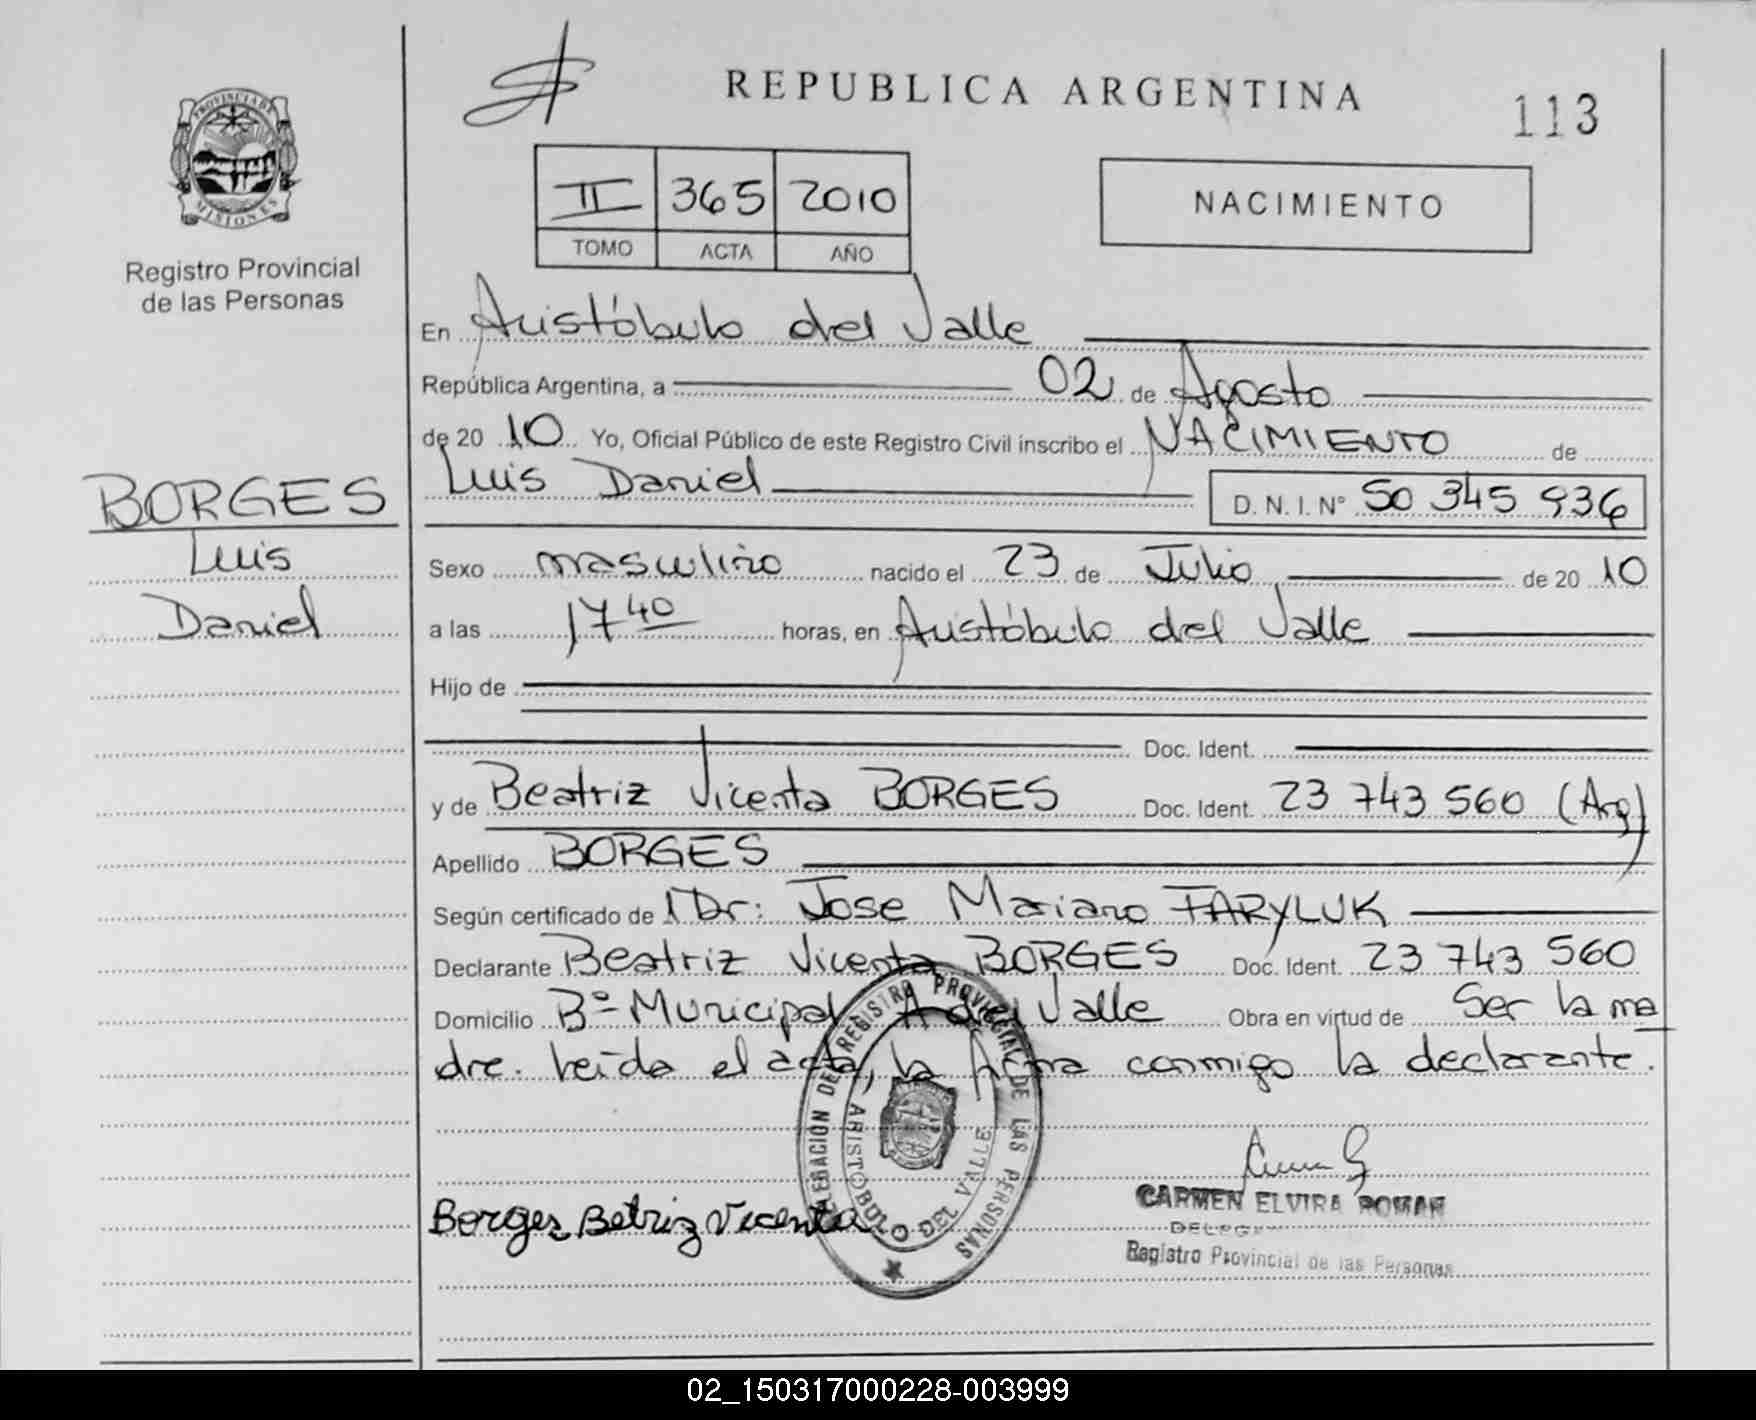 REPUBLICA ARGENTINA
113
PROVINCIA DE
MISIONES
Registro Provincial
de las Personas
II 365 2010
TOMO ACTA AÑO
NACIMIENTO
En Aristóbulo del Valle
República Argentina, a 02 de Agosto
de 20 10 Yo, Oficial Público de este Registro Civil inscribo el NACIMIENTO de
Luis Daniel D. N. I. Nº 50 345 936
BORGES
Luis
Daniel
Sexo masculino nacido el 23 de Julio de 20 10
a las 17 40 horas, en Aristóbulo del Valle
Hijo de
Doc. Ident.
y de Beatriz Vicenta BORGES Doc. Ident. 23 743 560 (Arg)
Apellido BORGES
Según certificado de Dr: Jose Mariano FARYLUK
Declarante Beatriz Vicenta BORGES Doc. Ident. 23 743 560
Domicilio Bº Municipal A del Valle Obra en virtud de Ser la ma
dre. leída el acta, la firma conmigo la declarante.
DELEGACION DEL REGISTRO PROVINCIAL DE LAS PERSONAS
ARISTOBULO DEL VALLE
Borges Betriz Vicenta
CARMEN ELVIRA ROMAN
Registro Provincial de las Personas
02_150317000228-003999